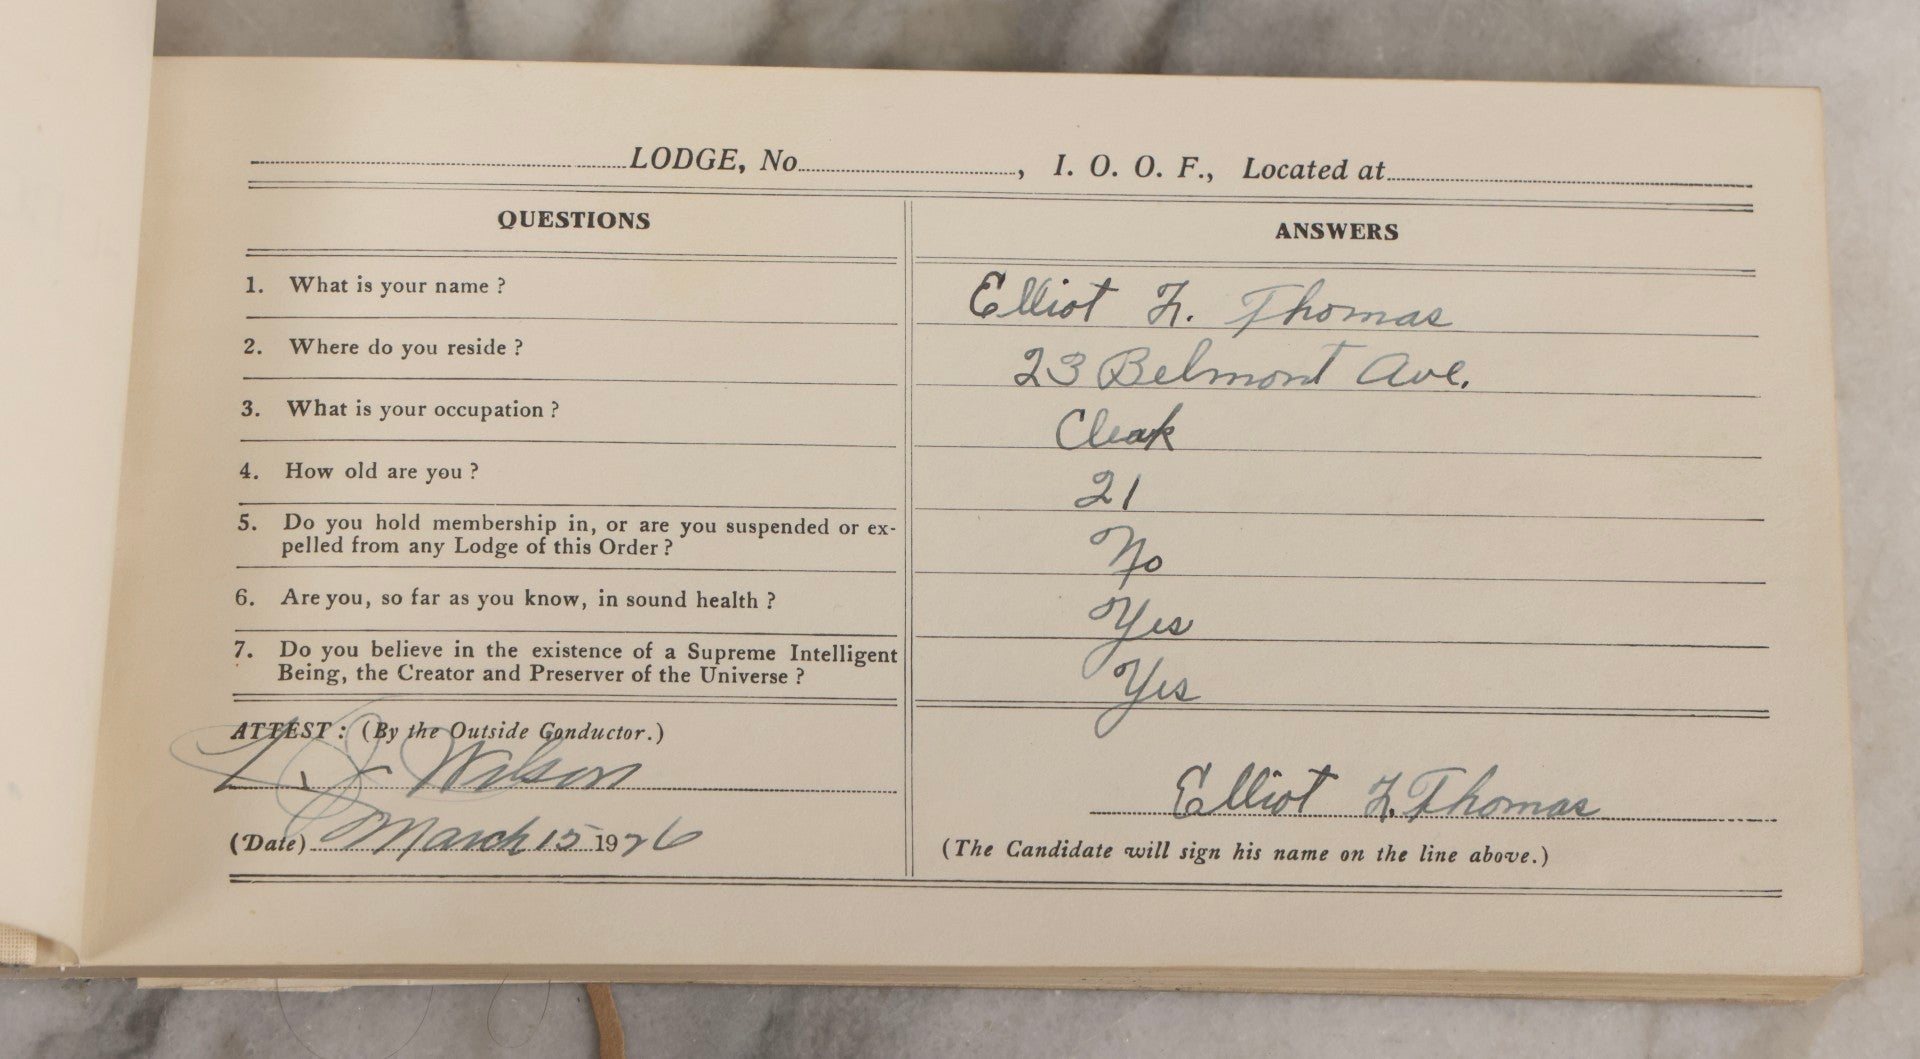 LODGE, No , I. O. O. F., Located at
QUESTIONS
ANSWERS
1. What is your name ?
Elliot F. Thomas
2. Where do you reside ?
23 Belmont Ave.
3. What is your occupation ?
Clerk
4. How old are you ?
21
5. Do you hold membership in, or are you suspended or ex-
pelled from any Lodge of this Order ?
No
6. Are you, so far as you know, in sound health ?
Yes
7. Do you believe in the existence of a Supreme Intelligent
Being, the Creator and Preserver of the Universe ?
Yes
ATTEST : (By the Outside Conductor.)
Wilson
(Date) March 15 1926
Elliot F. Thomas
(The Candidate will sign his name on the line above.)